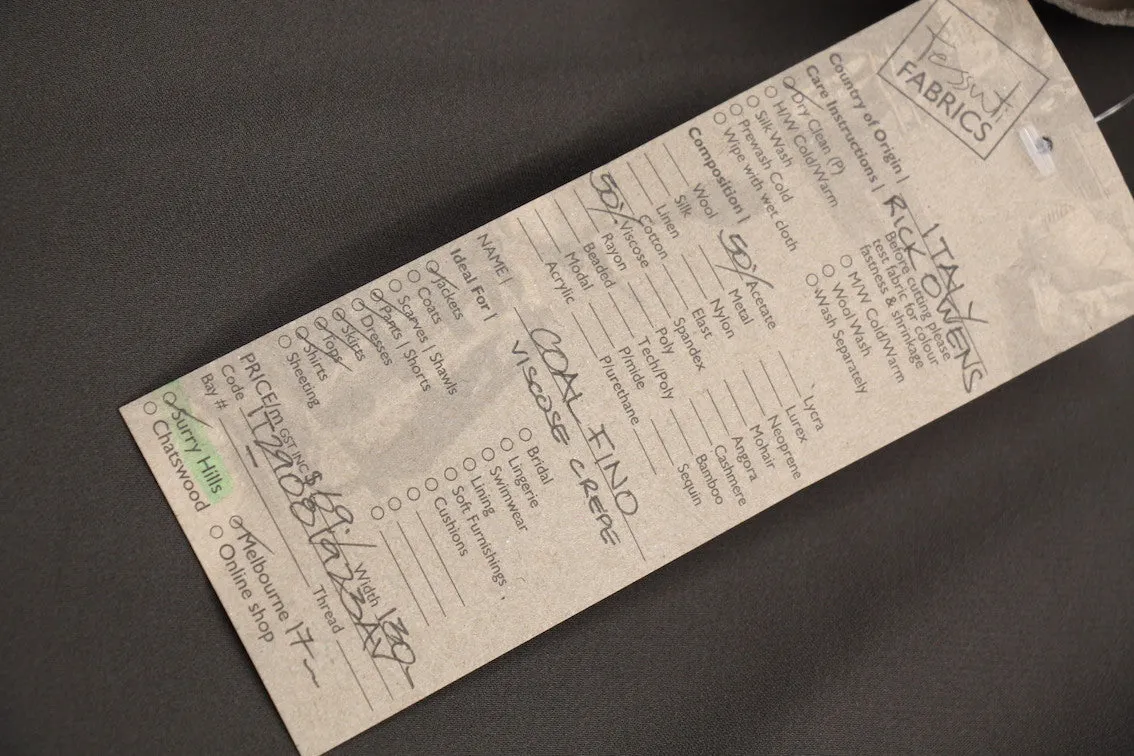 Tessuti
FABRICS
Country of Origin | ITALY
Care Instructions | RICK OWENS
Dry Clean (P)
H/W Cold/Warm
Silk Wash
Prewash Cold
Wipe with wet cloth
Before cutting please
test fabric for colour
fastness & shrinkage
M/W Cold/Warm
Wool Wash
Wash Separately
Composition |
Wool 50% Acetate Lycra
Silk Metal Lurex
Linen Nylon Neoprene
Cotton Elast Mohair
50% Viscose Spandex Angora
Rayon Poly Cashmere
Beaded Tech/Poly Bamboo
Modal P/mide Sequin
Acrylic P/urethane
NAME | COAL FINO
VISCOSE CREPE
Ideal For |
Jackets Bridal
Coats Lingerie
Scarves | Shawls Swimwear
Pants | Shorts Lining
Dresses Soft Furnishings
Skirts Cushions
Tops
Shirts
Sheeting
PRICE/m GST INC $69/ Width 130
Code
Bay # Thread
Surry Hills Melbourne 17m
Chatswood Online shop